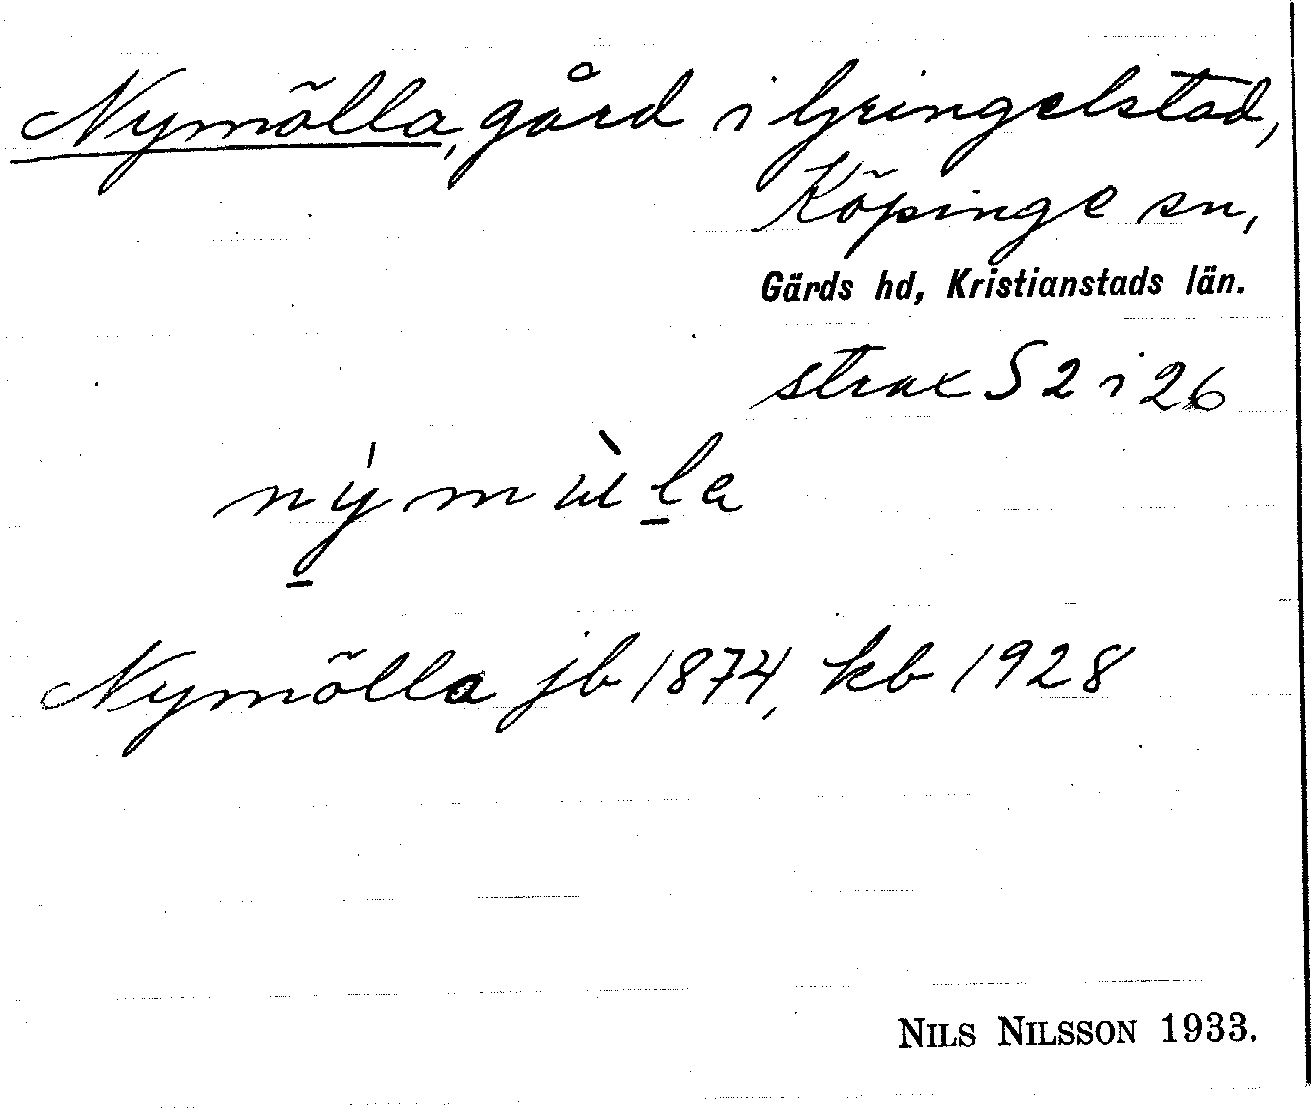 Nymölla, gård i Gringelstad,
Köpinge sn,
Gärds hd, Kristianstads län.
strax S 2 i 26
Nymölla jb 1874, kb 1928
NILS NILSSON 1933.